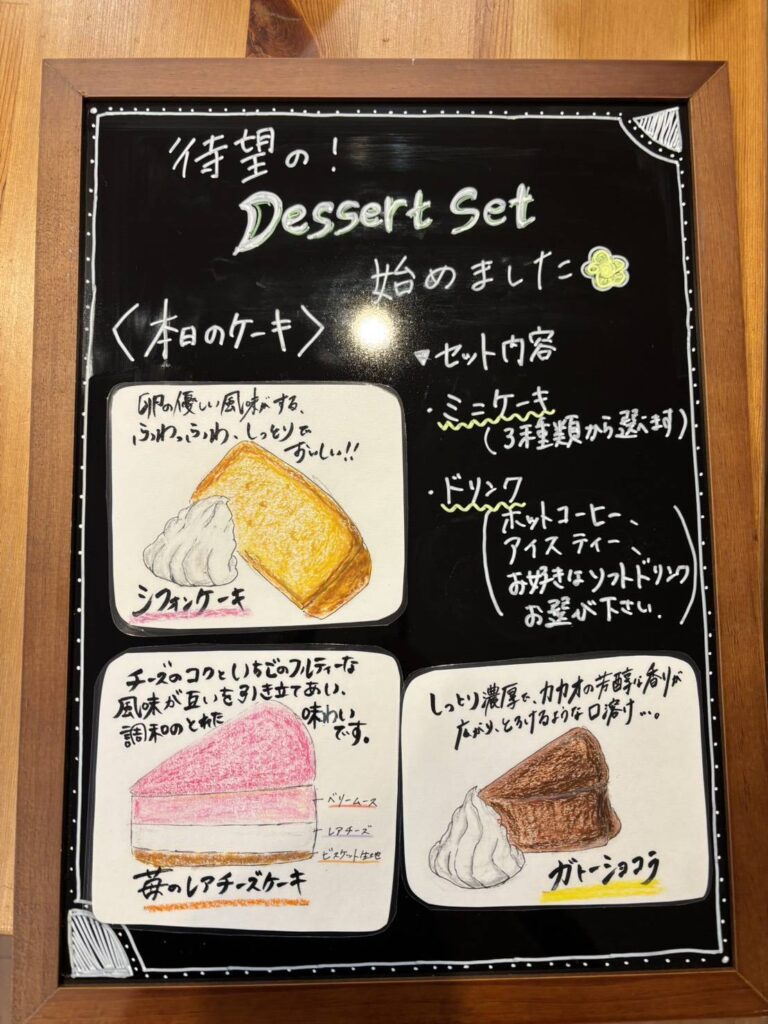 待望の!
Dessert Set
始めました
〈本日のケーキ〉
卵の優しい風味がする、
ふわっふわ、しっとりで
おいしい!!
シフォンケーキ
▼セット内容
・ミニケーキ
(3種類から選べます)
・ドリンク
(ホットコーヒー、
アイスティー、
お好きなソフトドリンク
お選び下さい.)
チーズのコクといちごのフルティーな
風味が互いを引き立てあい、
調和のとれた 味わい
です。
ベリームース
レアチーズ
ビスケット生地
苺のレアチーズケーキ
しっとり濃厚で、カカオの芳醇な香りが
広がり、とろけるような口溶け…。
ガトーショコラ